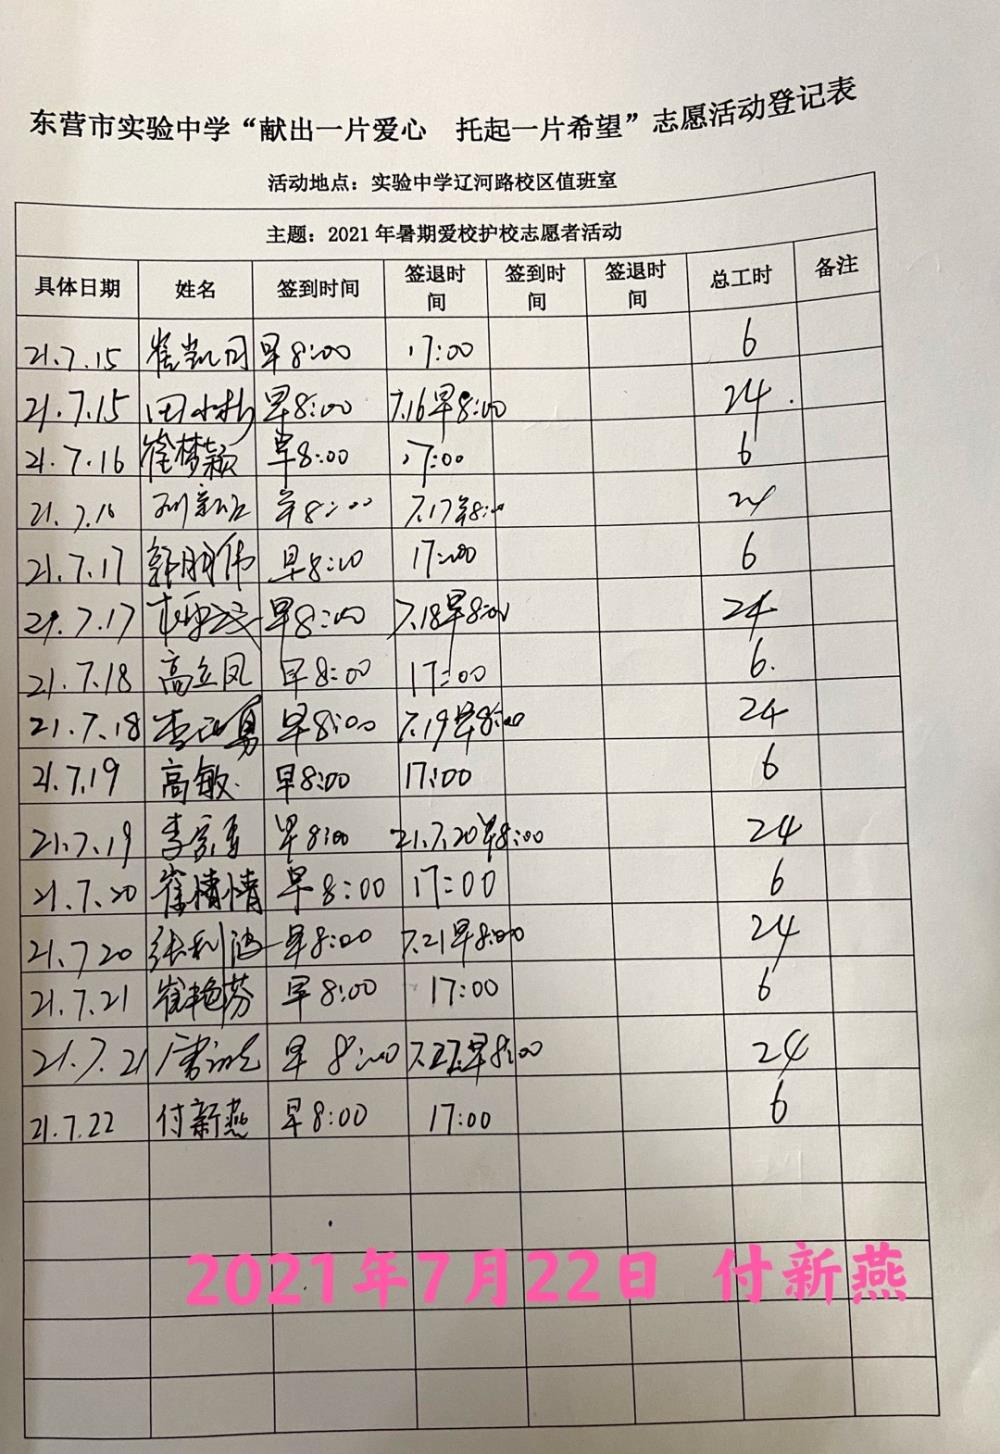 东营市实验中学“献出一片爱心 托起一片希望”志愿活动登记表
活动地点：实验中学辽河路校区值班室
主题：2021年暑期爱校护校志愿者活动
具体日期 姓名 签到时间 签退时间 签到时间 签退时间 总工时 备注
21.7.15 崔凯月 早8:00 17:00 6
21.7.15 早8:00 7.16早8:00 24
21.7.16 崔梦颖 早8:00 17:00 6
21.7.16 早8:00 7.17早8:00 24
21.7.17 郭朋伟 早8:00 17:00 6
21.7.17 早8:00 7.18早8:00 24
21.7.18 高立凤 早8:00 17:00 6.
21.7.18 早8:00 7.19早8:00 24
21.7.19 高敏. 早8:00 17:00 6
21.7.19 早8:00 21.7.20早8:00 24
21.7.20 崔情情 早8:00 17:00 6
21.7 20 张利 早8:00 7.21早8:00 24
21.7.21 崔艳芬 早8:00 17:00 6
21.7.21 早 8:00 7.22早8:00 24
21.7.22 付新燕 早8:00 17:00 6
2021年7月22日 付新燕